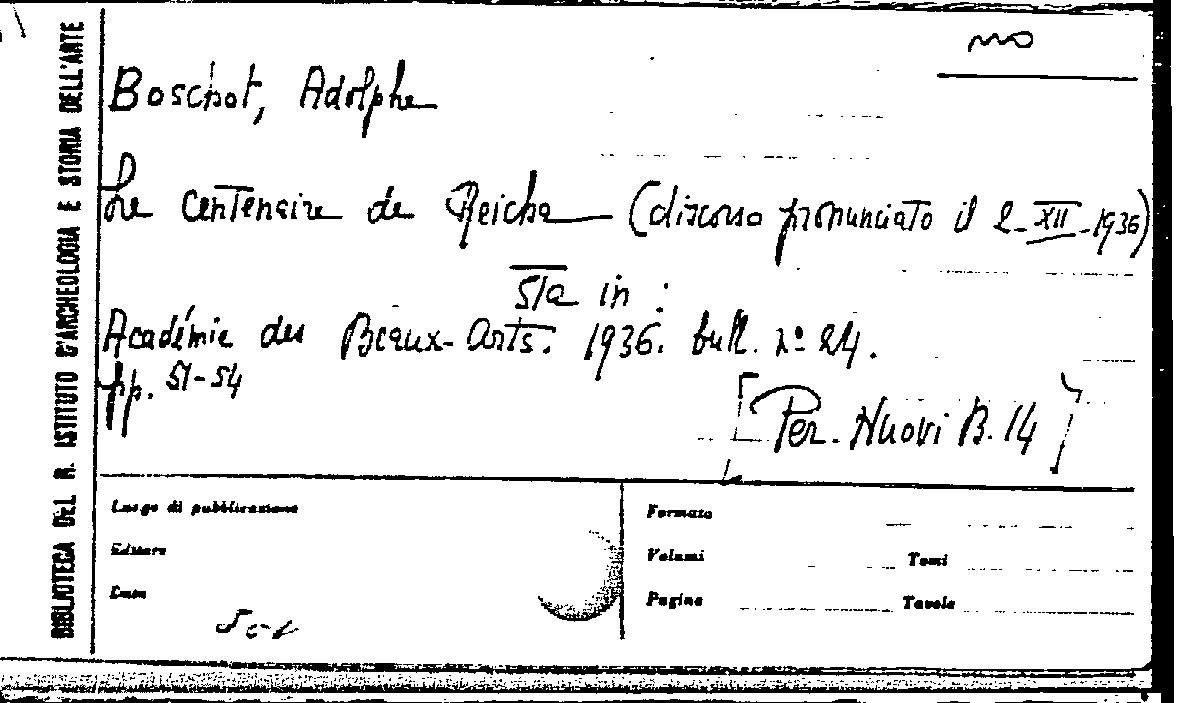 BIBLIOTECA DEL R. ISTITUTO D'ARCHEOLOGIA E STORIA DELL'ARTE
Boschot, Adolphe
Le Centenaire de Reicha (discorso pronunciato il 2-XII-1936)
Sta in :
Académie des Beaux-Arts. 1936. bull. nº 24.
pp. 51-54
[Per. Nuovi B. 14]
Luogo di pubblicazione
Editore
Data
Formato
Volumi Tomi
Pagine Tavole